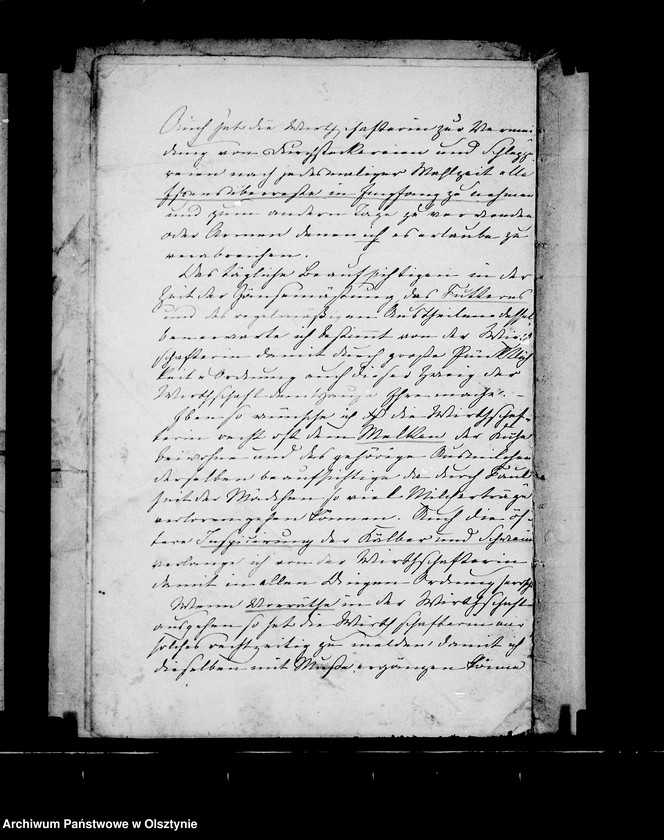 Auch hat die Wirthschafterin zur Vermei-
dung von Durchsteckereien und Schlepp-
reien nach jedesmaliger Mahlzeit alle
Essensüberreste in Empfang zu nehmen
und zum andern Tage zu verwenden
oder Armen denen ich es erlaube zu
verabreichen.
Das tägliche Beaufsichtigen in der
Zeit der Gänsemästung des Futterns
und des regelmäßigen Austheilens dessel
ben erwarte ich bestimmt von der Wirth
schafterin damit durch große Pünktlich
keit u Ordnung auch dieser Zweig der
Wirthschaft dem Hause Ehre mache. –
Ebenso wünsche ich dß die Wirthschaf-
terin recht oft dem Melken der Kühe
beiwohne und das gehörige Ausmelken
derselben beaufsichtige da durch Faul
heit der Mädchen so viel Milcherträge
verloren gehen können. Auch die öf-
tere Inspicirung der Kälber und Schweine
verlange ich von der Wirthschafterin
damit in allen Dingen Ordnung herrsche
Wenn Vorräthe in der Wirthschaft
ausgehen so hat die Wirthschafterin mir
solches rechtzeitig zu melden, damit ich
dieselben mit Muße ergänzen könne
Archiwum Państwowe w Olsztynie